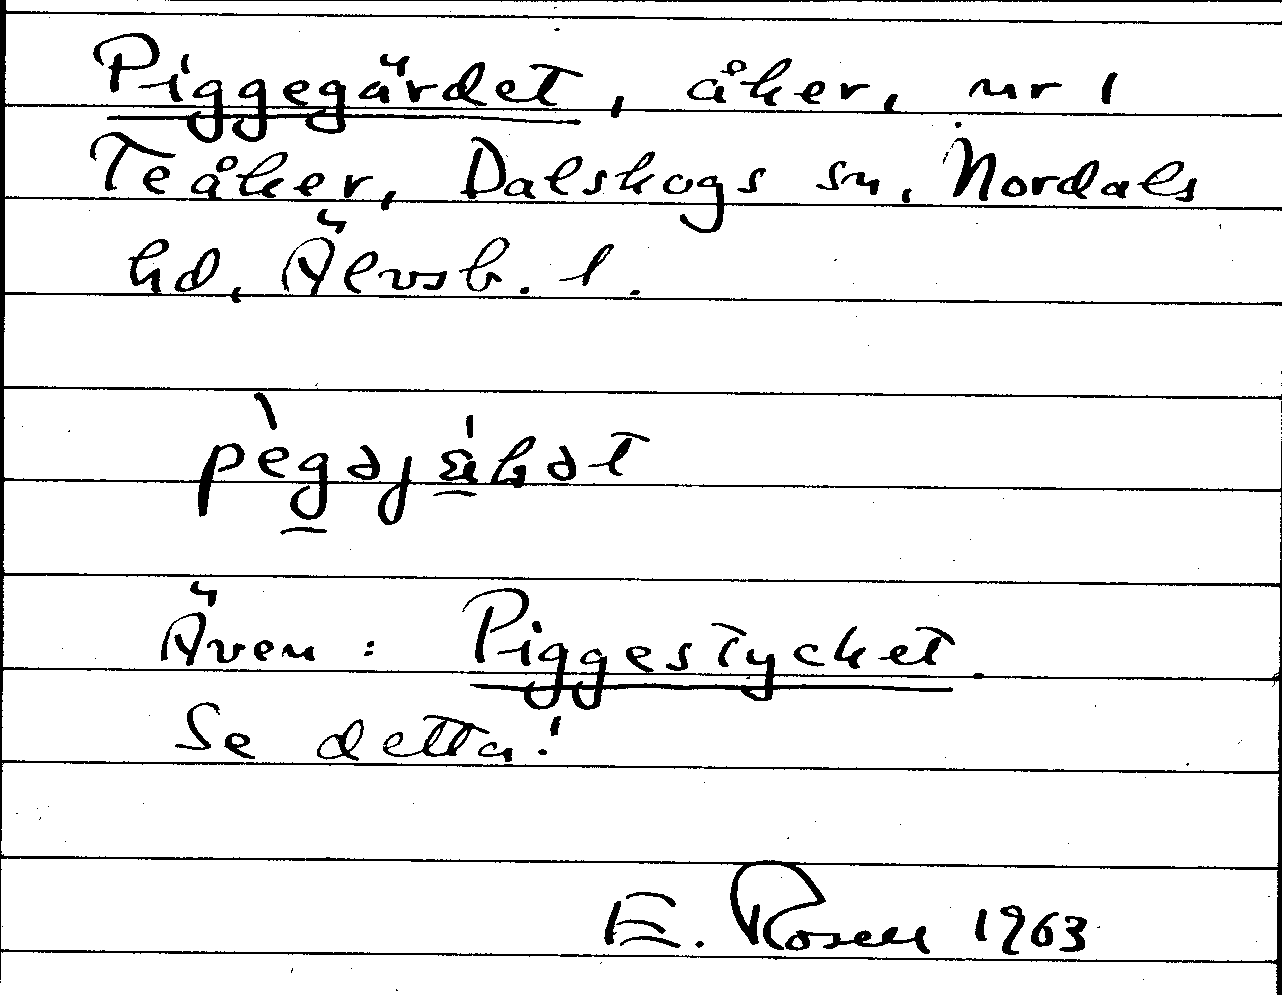 Piggegärdet, åker, nr 1
Teåker, Dalskogs sn, Nordals
hd, Älvsb. l.
Även: Piggestycket
Se detta!
E. Rosell 1963